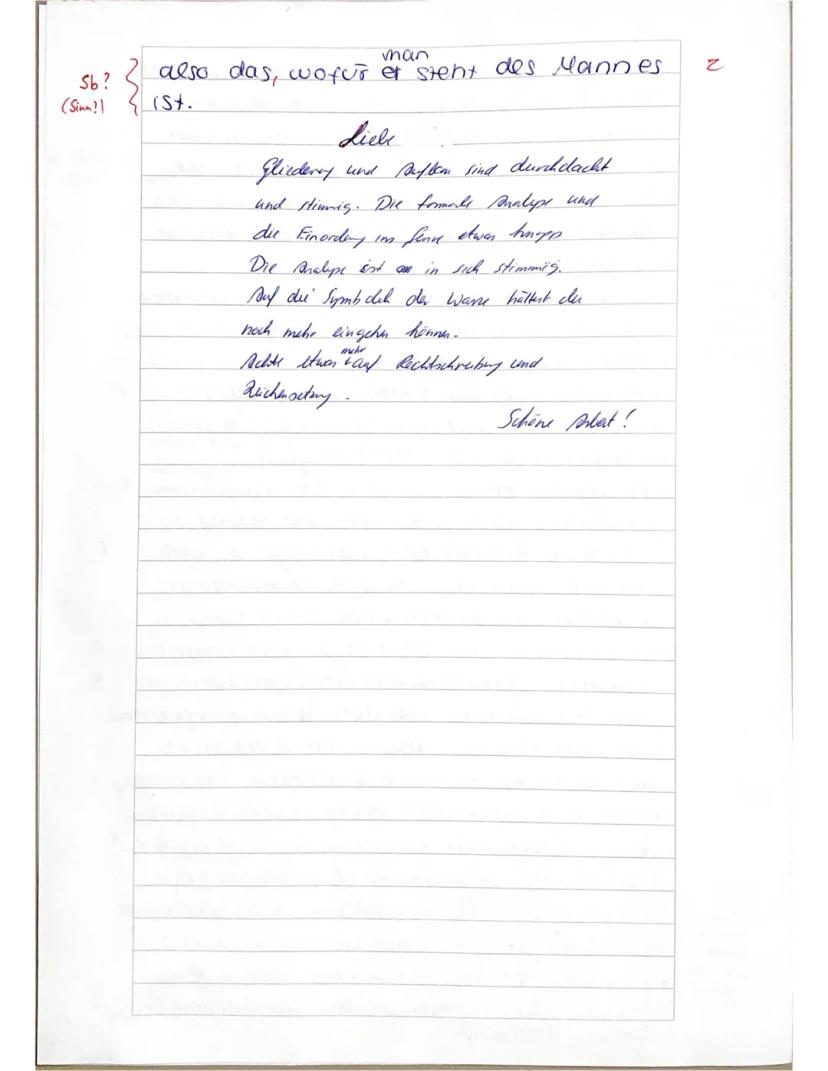 also das, wofür er man steht des Mannes z
Sb?
(Sinn?)
ist.
Liebe
Gliederung und Aufbau sind durchdacht
und stimmig. Die formale Analyse und
die Einordnung ins Genre etwas knapp
Die Analyse ist in sich stimmig.
Auf die Symbolik der Ware hättest du
noch mehr eingehen können.
Achte etwas mehr auf Rechtschreibung und
Zeichensetzung.
Schöne Arbeit!